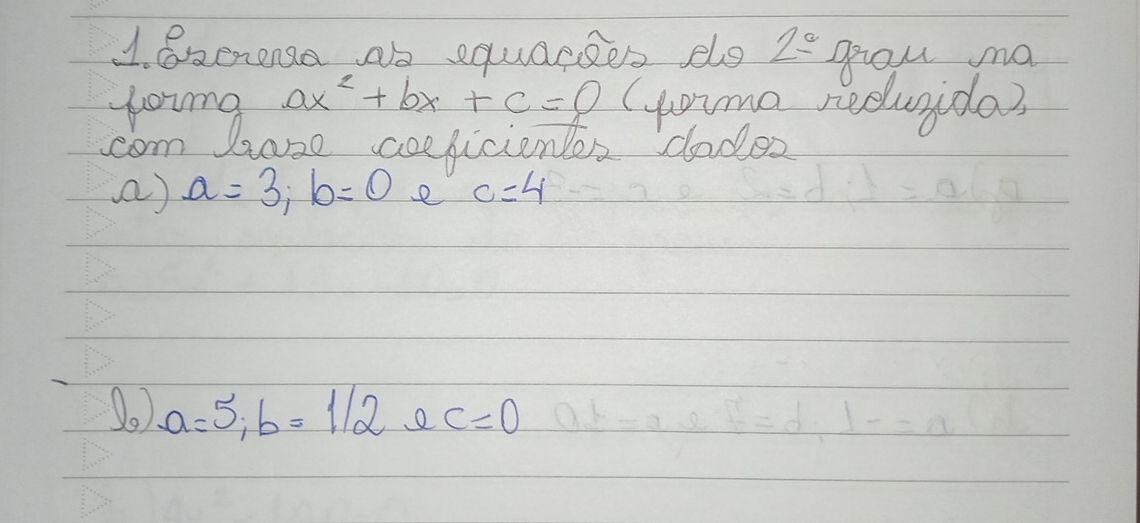 1. Escreva as equações do 2º grau na
forma ax² + bx + c = 0 (forma reduzida),
com base coeficientes dados
a) a = 3; b = 0 e c = 4
b) a = 5; b = 1/2 e c = 0